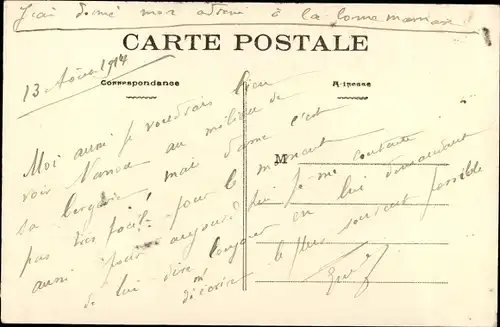 J'ai donné mon adresse à la bonne maman
CARTE POSTALE
13 Août 1917
Correspondance
Adresse
M
Moi aussi je voudrais bien
voir Nanou au milieu de
sa bergerie, mais dame c'est
pas très facile pour le moment
aussi pour aujourd'hui je me contente
de lui dire bonjour en lui demandant
de m'écrire le plus souvent possible